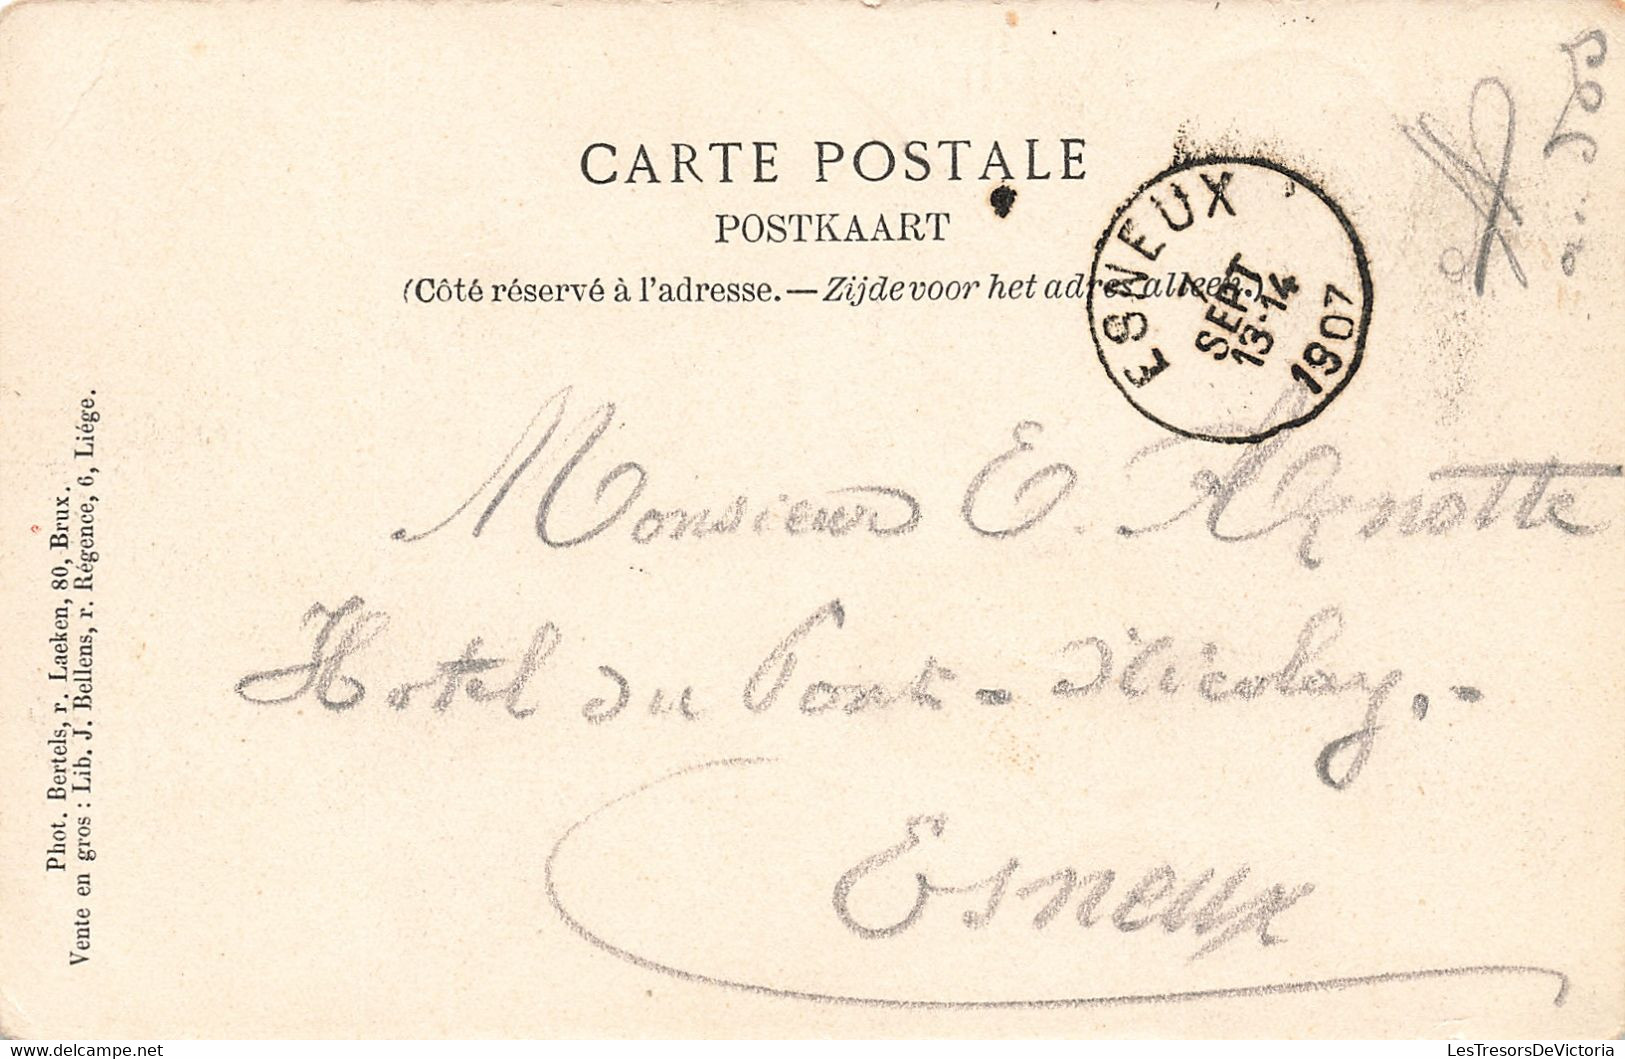 CARTE POSTALE
POSTKAART
(Côté réservé à l'adresse.—Zijde voor het adres alleen.)
ESNEUX
SEPT
13-14
1907
Monsieur E.
Hotel du Pont-Nicolay,-
Esneux
Phot. Bertels, r. Laeken, 80, Brux.
Vente en gros : Lib. J. Bellens, r. Régence, 6, Liége.
LesTresorsDeVictoria